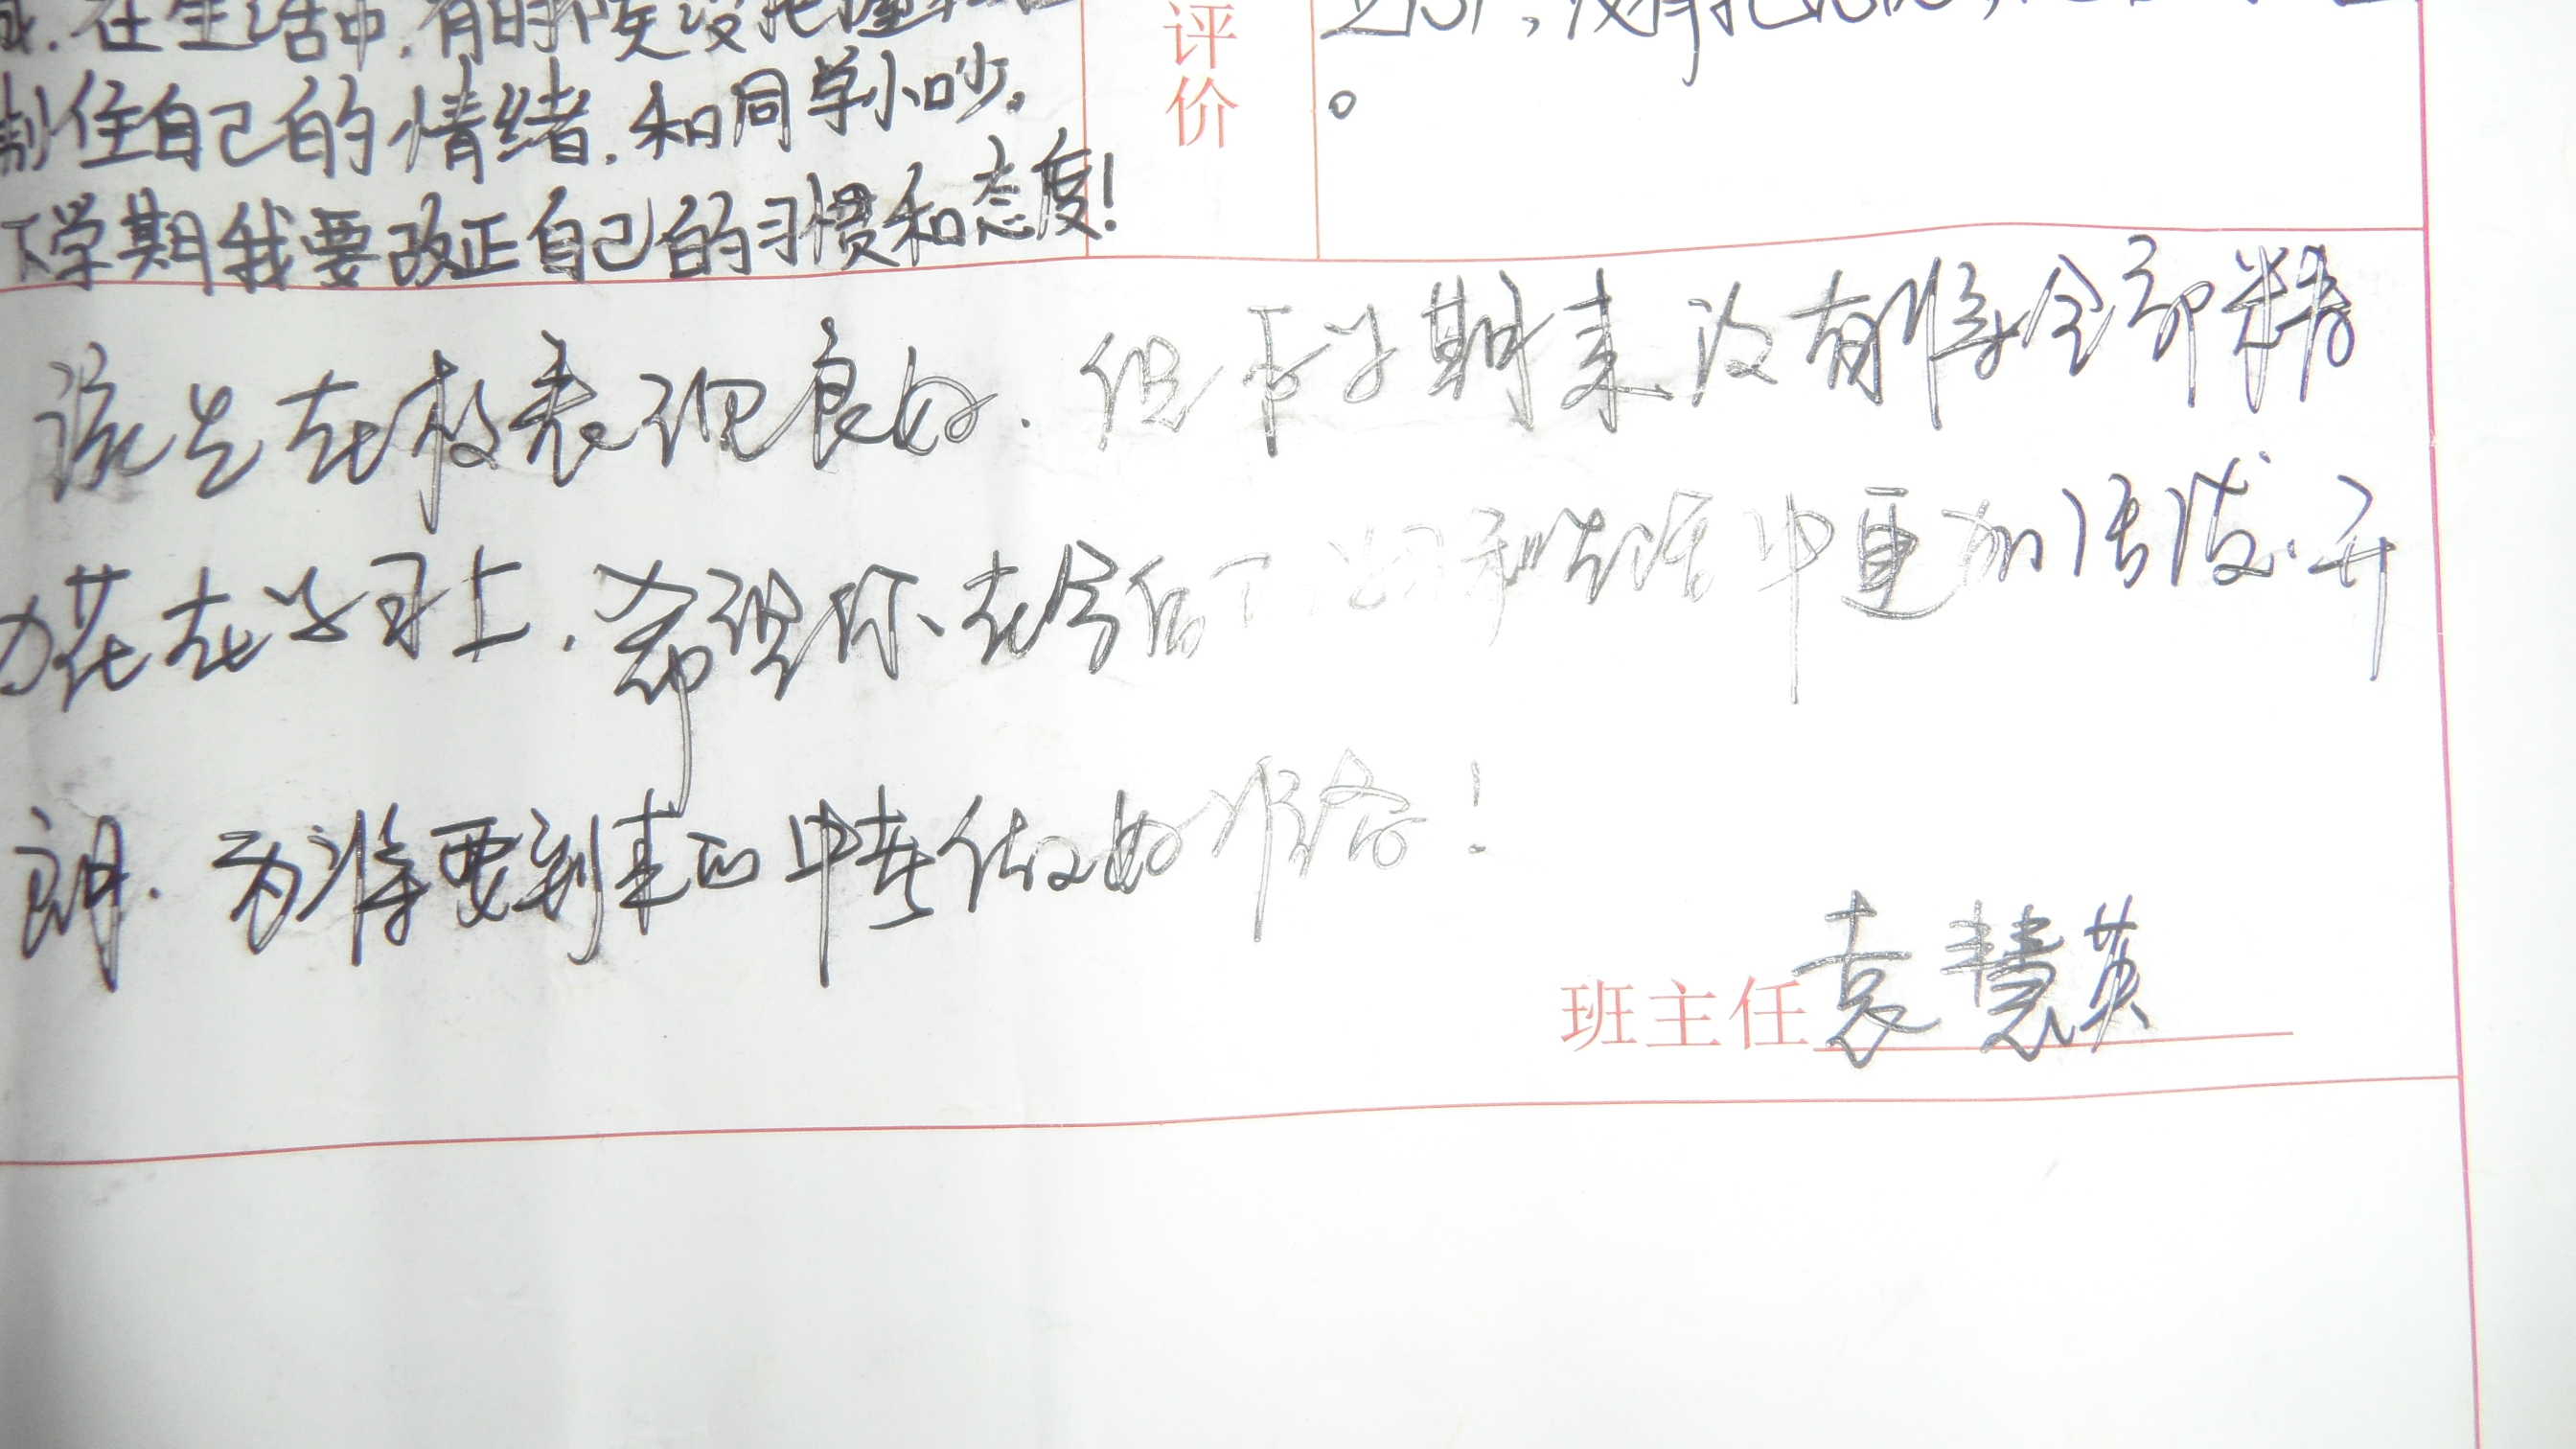 在生活中,有时候没把握
制住自己的情绪,和同学小吵。
下学期我要改正自己的习惯和态度!
评
价
。
该生在校表现良好.但本学期来没有将全部精
力花在学习上.希望你在今后 学习和生活中更加活泼.开
朗.为将要到来的中考做好准备!
班主任袁慧英